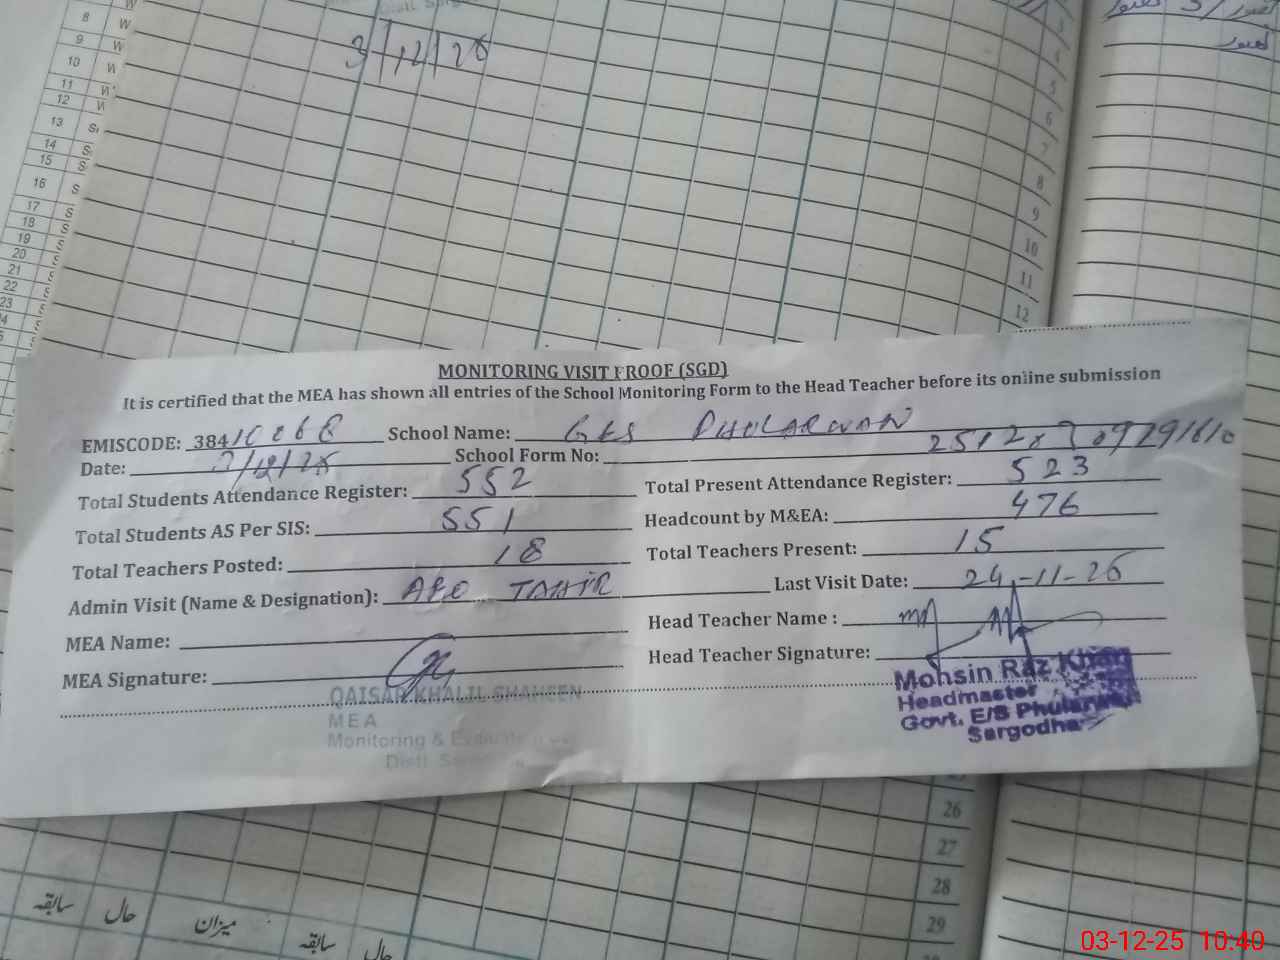 3/12/25
8 W
9 W
10 W
11 W
12 W
13 S
14 S
15 S
16 S
17 S
18 S
19 S
20 S
21 S
22 S
23 S
3
4
5
6
7
8
9
10
11
12
MONITORING VISIT PROOF (SGD)
It is certified that the MEA has shown all entries of the School Monitoring Form to the Head Teacher before its online submission
EMISCODE: 38410868 School Name: GES PHULARWAN
Date: 3/12/25 School Form No:
Total Students Attendance Register: 552 Total Present Attendance Register: 523
Total Students AS Per SIS: 551 Headcount by M&EA: 476
Total Teachers Posted: 18 Total Teachers Present: 15
Admin Visit (Name & Designation): AEO TAHIR Last Visit Date: 24-11-25
MEA Name: Head Teacher Name :
MEA Signature: Head Teacher Signature:
QAISAR KHALIL SHAHEEN
MEA
Monitoring &
Mohsin Raz Khan
Headmaster
Govt. E/S Phularwan
Sargodha
26
27
28
29
سابقہ حال میزان سابقہ حال
03-12-25 10:40